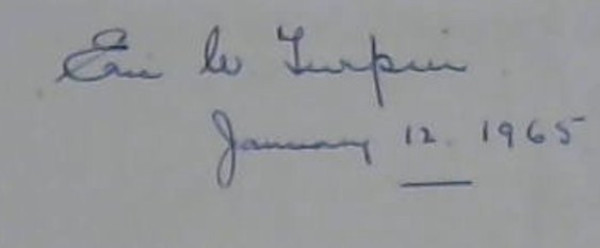 Eric W Turpin
January 12. 1965